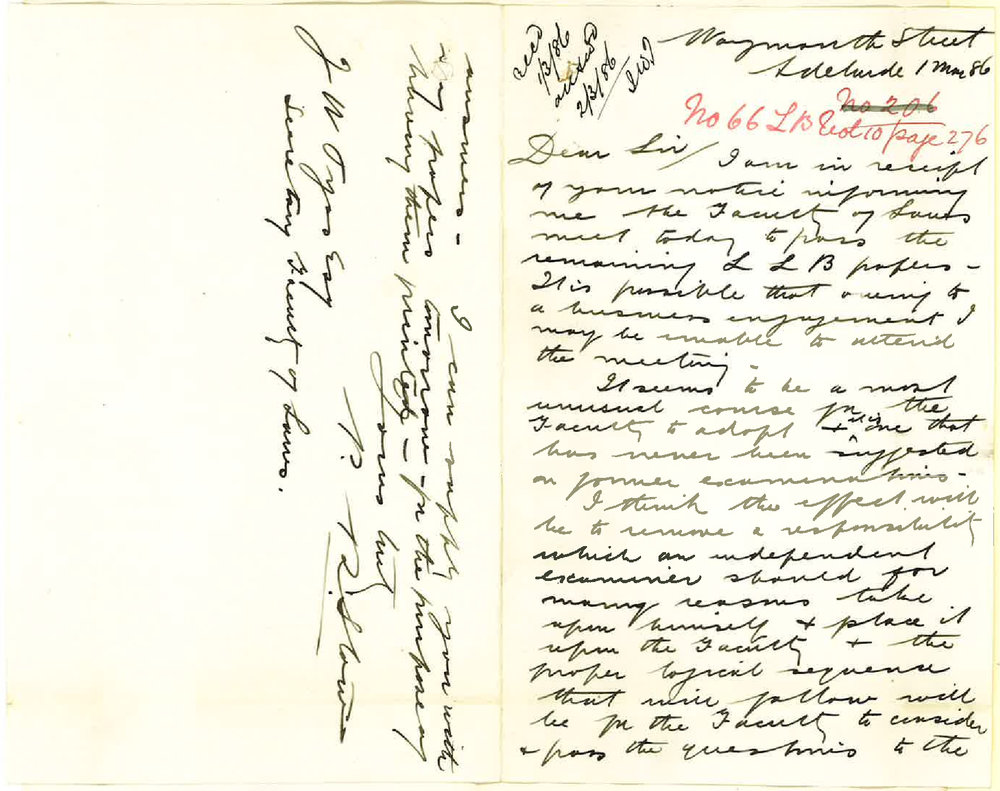 Recd
1/3/86
answd
2/3/86
JWT
Waymouth Street
Adelaide 1 Mar 86
No 206
No 66 LB Vol 10 page 276
Dear Sir/ I am in receipt
of your notice informing
me the Faculty of Laws
meet today to pass the
remaining L L B papers -
It is possible that owing to
a business engagement I
may be unable to attend
the meeting -
It seems to be a most
unusual course for the
Faculty to adopt & it is one that
has never been suggested
on former examinations -
I think the effect will
be to remove a responsibility
which an independent
examiner should for
many reasons take
upon himself & place it
upon the Faculty & the
proper logical sequence
that will follow will
be for the Faculty to consider
& pass the questions to the
answers - I can supply you with
my papers tomorrow - for the purpose of
having them printed -
Yours truly
P. R. Stow
J W Tyas Esq
Secretary Faculty of Laws.